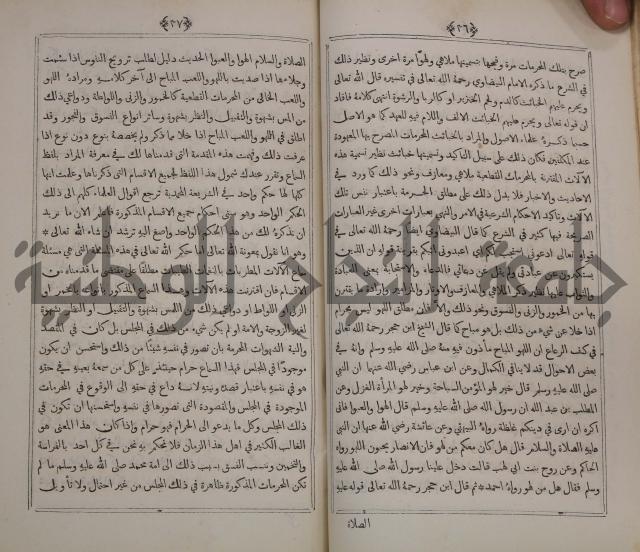 ﴿٢٦﴾
صرح بتلك المحرمات مرة وتجهبها بتسميتها ملاهي ولهوًا مرة اخرى ونظير ذلك
في الشرع ما ذكره الامام البيضاوي رحمة الله تعالى في تفسيره قال الله تعالى
ويحرم عليهم الخبائث كالدم ولحم الخنزير او كالربا والرشوة انتهى كلامه فافاد
ان قوله تعالى ويحرم عليهم الخبائث الالف واللام فيه للعهد كما هو الاصل
حسبما ذكره علماء الاصول والمراد بالخبائث المحرمات المصرح بها المعهودة
عند المكلفين فكان ذلك على سبيل التاكيد وتسميتها خبائث نظير تسمية هذه
الآلات المقترنة بالمحرمات القطعية ملاهي ومعازف ونحو ذلك كما ورد في
الاحاديث والاخبار فلا يدل ذلك على مطلق الحرمة باعتبار نفس تلك
الآلات وتاكد الاحكام الشرعية في الامر والنهي بعبارات اخرى غير العبارات
الصريحة فيها كثير في الشرع كما قال البيضاوي ايضًا رحمة الله تعالى في
قوله تعالى ادعوني استجب لكم اي اعبدوني اثبكم بقرينة قوله ان الذين
يستكبرون عن عبادتي ولم يقل عن دعائي فالدعاء والاستجابة بمعنى العبادة
والثواب عليها نظير ذكر الملاهي والمعازف والاوتار والمزامير وارادة ما يقترن
بها من الخمور والزنى والفسوق ونحو ذلك والا فان مطلق اللهو ليس بحرام
اذا خلا عن شيء من ذلك بل هو مباح كما قال الشيخ ابن حجر رحمة الله تعالى
في كف الرعاع ان اللهو المباح ماذون فيه منه صلى الله عليه وسلم وانه في
بعض الاحوال قد لا ينافي الكمال وعن ابن عباس رضي الله عنهما ان النبي
صلى الله عليه وسلم قال خير لهو المؤمن السباحة وخير لهو المرأة الغزل وعن
المطلب بن عبد الله ان رسول الله صلى الله عليه وسلم قال الهوا والعبوا فاني
اكره ان ارى في دينكم غلظة رواه البيهقي وعن عائشة رضي الله عنها ان النبي
عليه الصلاة والسلام قال هل كان معكم من لهو فان الانصار يحبون اللهو رواه
الحاكم وعن روح بنت ابي لهب قالت دخل علينا رسول الله صلى الله عليه
وسلم فقال هل من لهو رواه احمد ثم قال ابن حجر رحمة الله تعالى قوله عليه
الصلاة
﴿٢٧﴾
الصلاة والسلام الهوا والعبوا الحديث دليل لطلب ترويح النفوس اذا سئمت
وجلاءها اذا صديت باللهو واللعب المباح الى آخر كلامه ومراده اللهو
واللعب الخالي من المحرمات القطعية كالخمور والزنى واللواطة ودواعي ذلك
من المس بشهوة والتقبيل والنظر بشهوة وسائر انواع الفسوق والفجور وقد
اطلق في اللهو واللعب المباح اذا خلا مما ذكر ولم يخصصه بنوع دون نوع اذا
عرفت ذلك وفهمت هذه المقدمة التي قدمناها لك في معرفة المراد بلفظ
السماع وتقرر عندك شمول هذا اللفظ لجميع الاقسام التي ذكرناها وعلمت انها
كلها لها حكم واحد في الشريعة المحمدية ترجع اقوال العلماء كلهم الى ذلك
الحكم الواحد وهو حكم جميع الاقسام المذكورة فاعلم الان ما نريد
ان نذكره لك من هذا الحكم الواحد واصغ اليه ترشد ان شاء الله تعالى
وها انا نقول بمعونة الله تعالى اما حكم الله تعالى في هذه المسئلة التي هي مسئلة
سماع الآلات المطربات بالنغمات الطيبات مطلقًا على مقتضى ما قدمناه من
الاقسام فان اقترنت هذه الآلات وهذا السماع المذكور بانواعه بالخمر او
الزنى او اللواط او دواعي ذلك من اللمس بشهوة والتقبيل او النظر بشهوة
لغير الزوجة والامة او لم يكن شيء من ذلك في المجلس بل كان في القصد
والنية الشهوات المحرمة بان تصور في نفسه شيئًا من ذلك واستحسن ان يكون
موجودًا في المجلس فهذا السماع حرام حينئذ على كل من سمعه بعينه في حقه
هو في نفسه باعتبار قصده ونيته لانه داع في حقه الى الوقوع في المحرمات
الموجودة في المجلس والمقصودة التي تصورها في نفسه واستحسنها ان تكون في
ذلك المجلس وكل ما يدعو الى الحرام فهو حرام واذا كان هذا المعنى هو
الغالب الكثير في اهل هذا الزمان فلا نحكم به نحن في كل احد بالفراسة
والتخمين وننسب الفسق بسبب ذلك الى امة محمد صلى الله عليه وسلم ما لم
تكن المحرمات المذكورة ظاهرة في ذلك المجلس من غير احتمال ولا تأويل